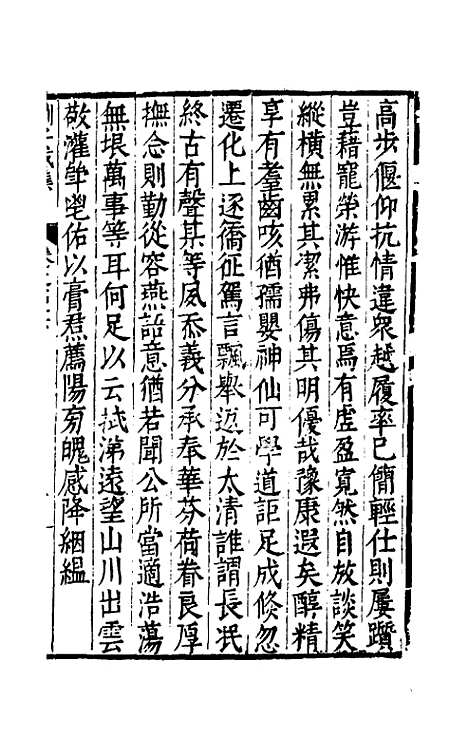 高步偃仰抗情違衆越履率已簡輕仕則屢躓
豈藉寵榮游惟快意焉有虛盈寛然自放談笑
縱橫無累其潔弗傷其明優哉豫康遐矣醇精
享有羣齒咳猶孺嬰神仙可學道詎足成倐忽
遷化上逐喬征駕言飄舉返於太清誰謂長泯
終古有聲某等夙忝義分承奉華芬荷眷良厚
撫念則勤從容燕語意猶若聞公所當適浩蕩
無垠萬事等耳何足以云拭涕遠望山川出雲
敬灌斝鬯佑以膏焄薦陽夯魄感降絪縕